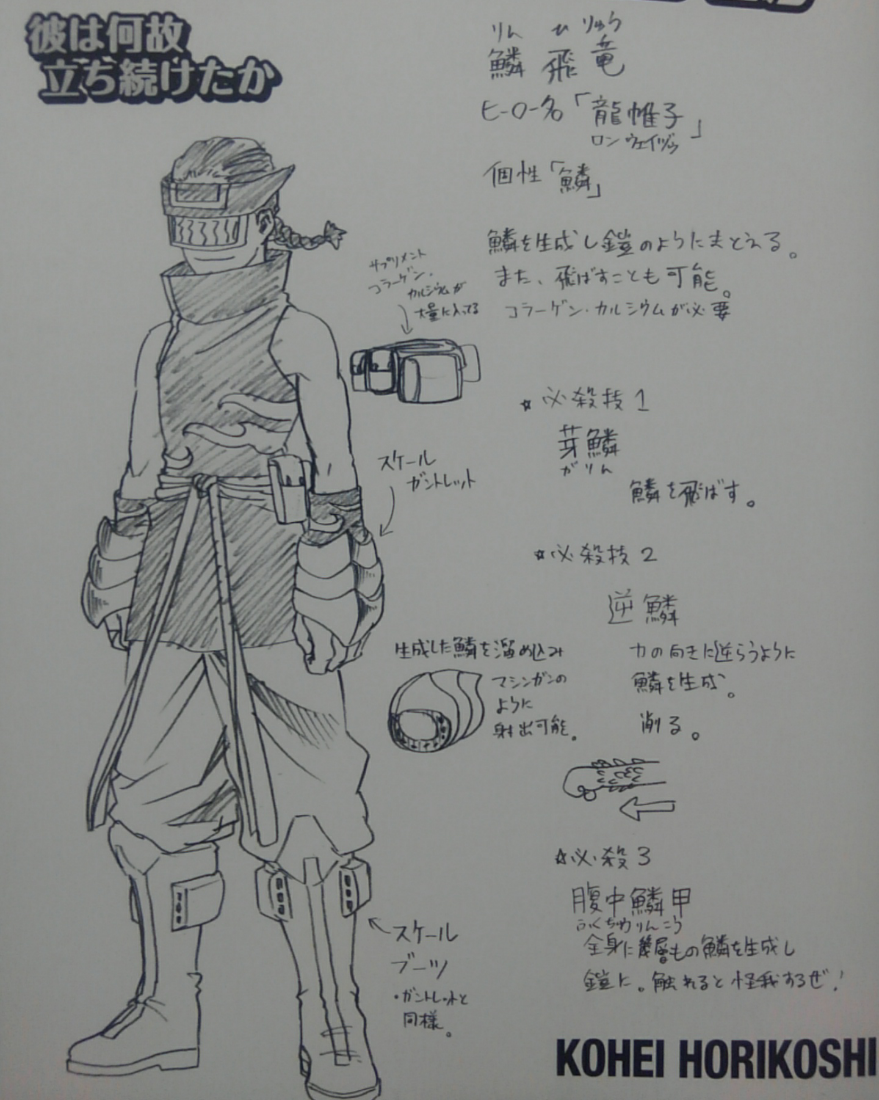 彼は何故
立ち続けたか
りん ひ りゅう
鱗 飛 竜
ヒーロー名「龍帷子」
ロン ウェイヅゥ
個性「鱗」
鱗を生成し鎧のようにまとえる。
また、飛ばすことも可能。
コラーゲン・カルシウムが必要
サプリメント
コラーゲン・
カルシウムが
大量に入ってる
☆必殺技1
芽鱗
がりん
鱗を飛ばす。
スケール
ガントレット
☆必殺技2
逆鱗
力の向きに逆らうように
鱗を生成。
削る。
生成した鱗を溜め込み
マシンガンの
ように
射出可能。
☆必殺3
腹中鱗甲
ふくちゅうりんこう
全身に幾層もの鱗を生成し
鎧に。触れると怪我するぜ!
スケール
ブーツ
・ガントレットと
同様。
KOHEI HORIKOSHI